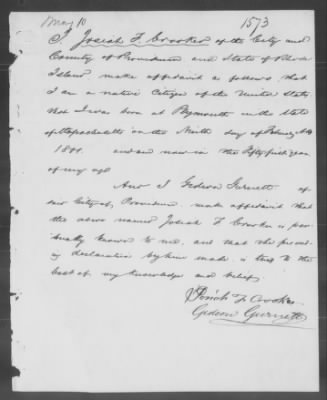 May 10
1573
I, Josiah F Crooker of the City and
County of Providence and State of Rhode
Island make affidavit as follows that
I am a native Citizen of the United States
that I was born at Plymouth in the State
of Massachusetts on the Ninth day of AD
and am now in the Fifty first year
of my age
And I Gideon Gurnett of
City of Providence make affidavit that
the above named Josiah F Crooker is per-
sonally known to me, and that the
declaration by him made is true to the
best of my knowledge and belief
Josiah F Crooker
Gideon Gurnett